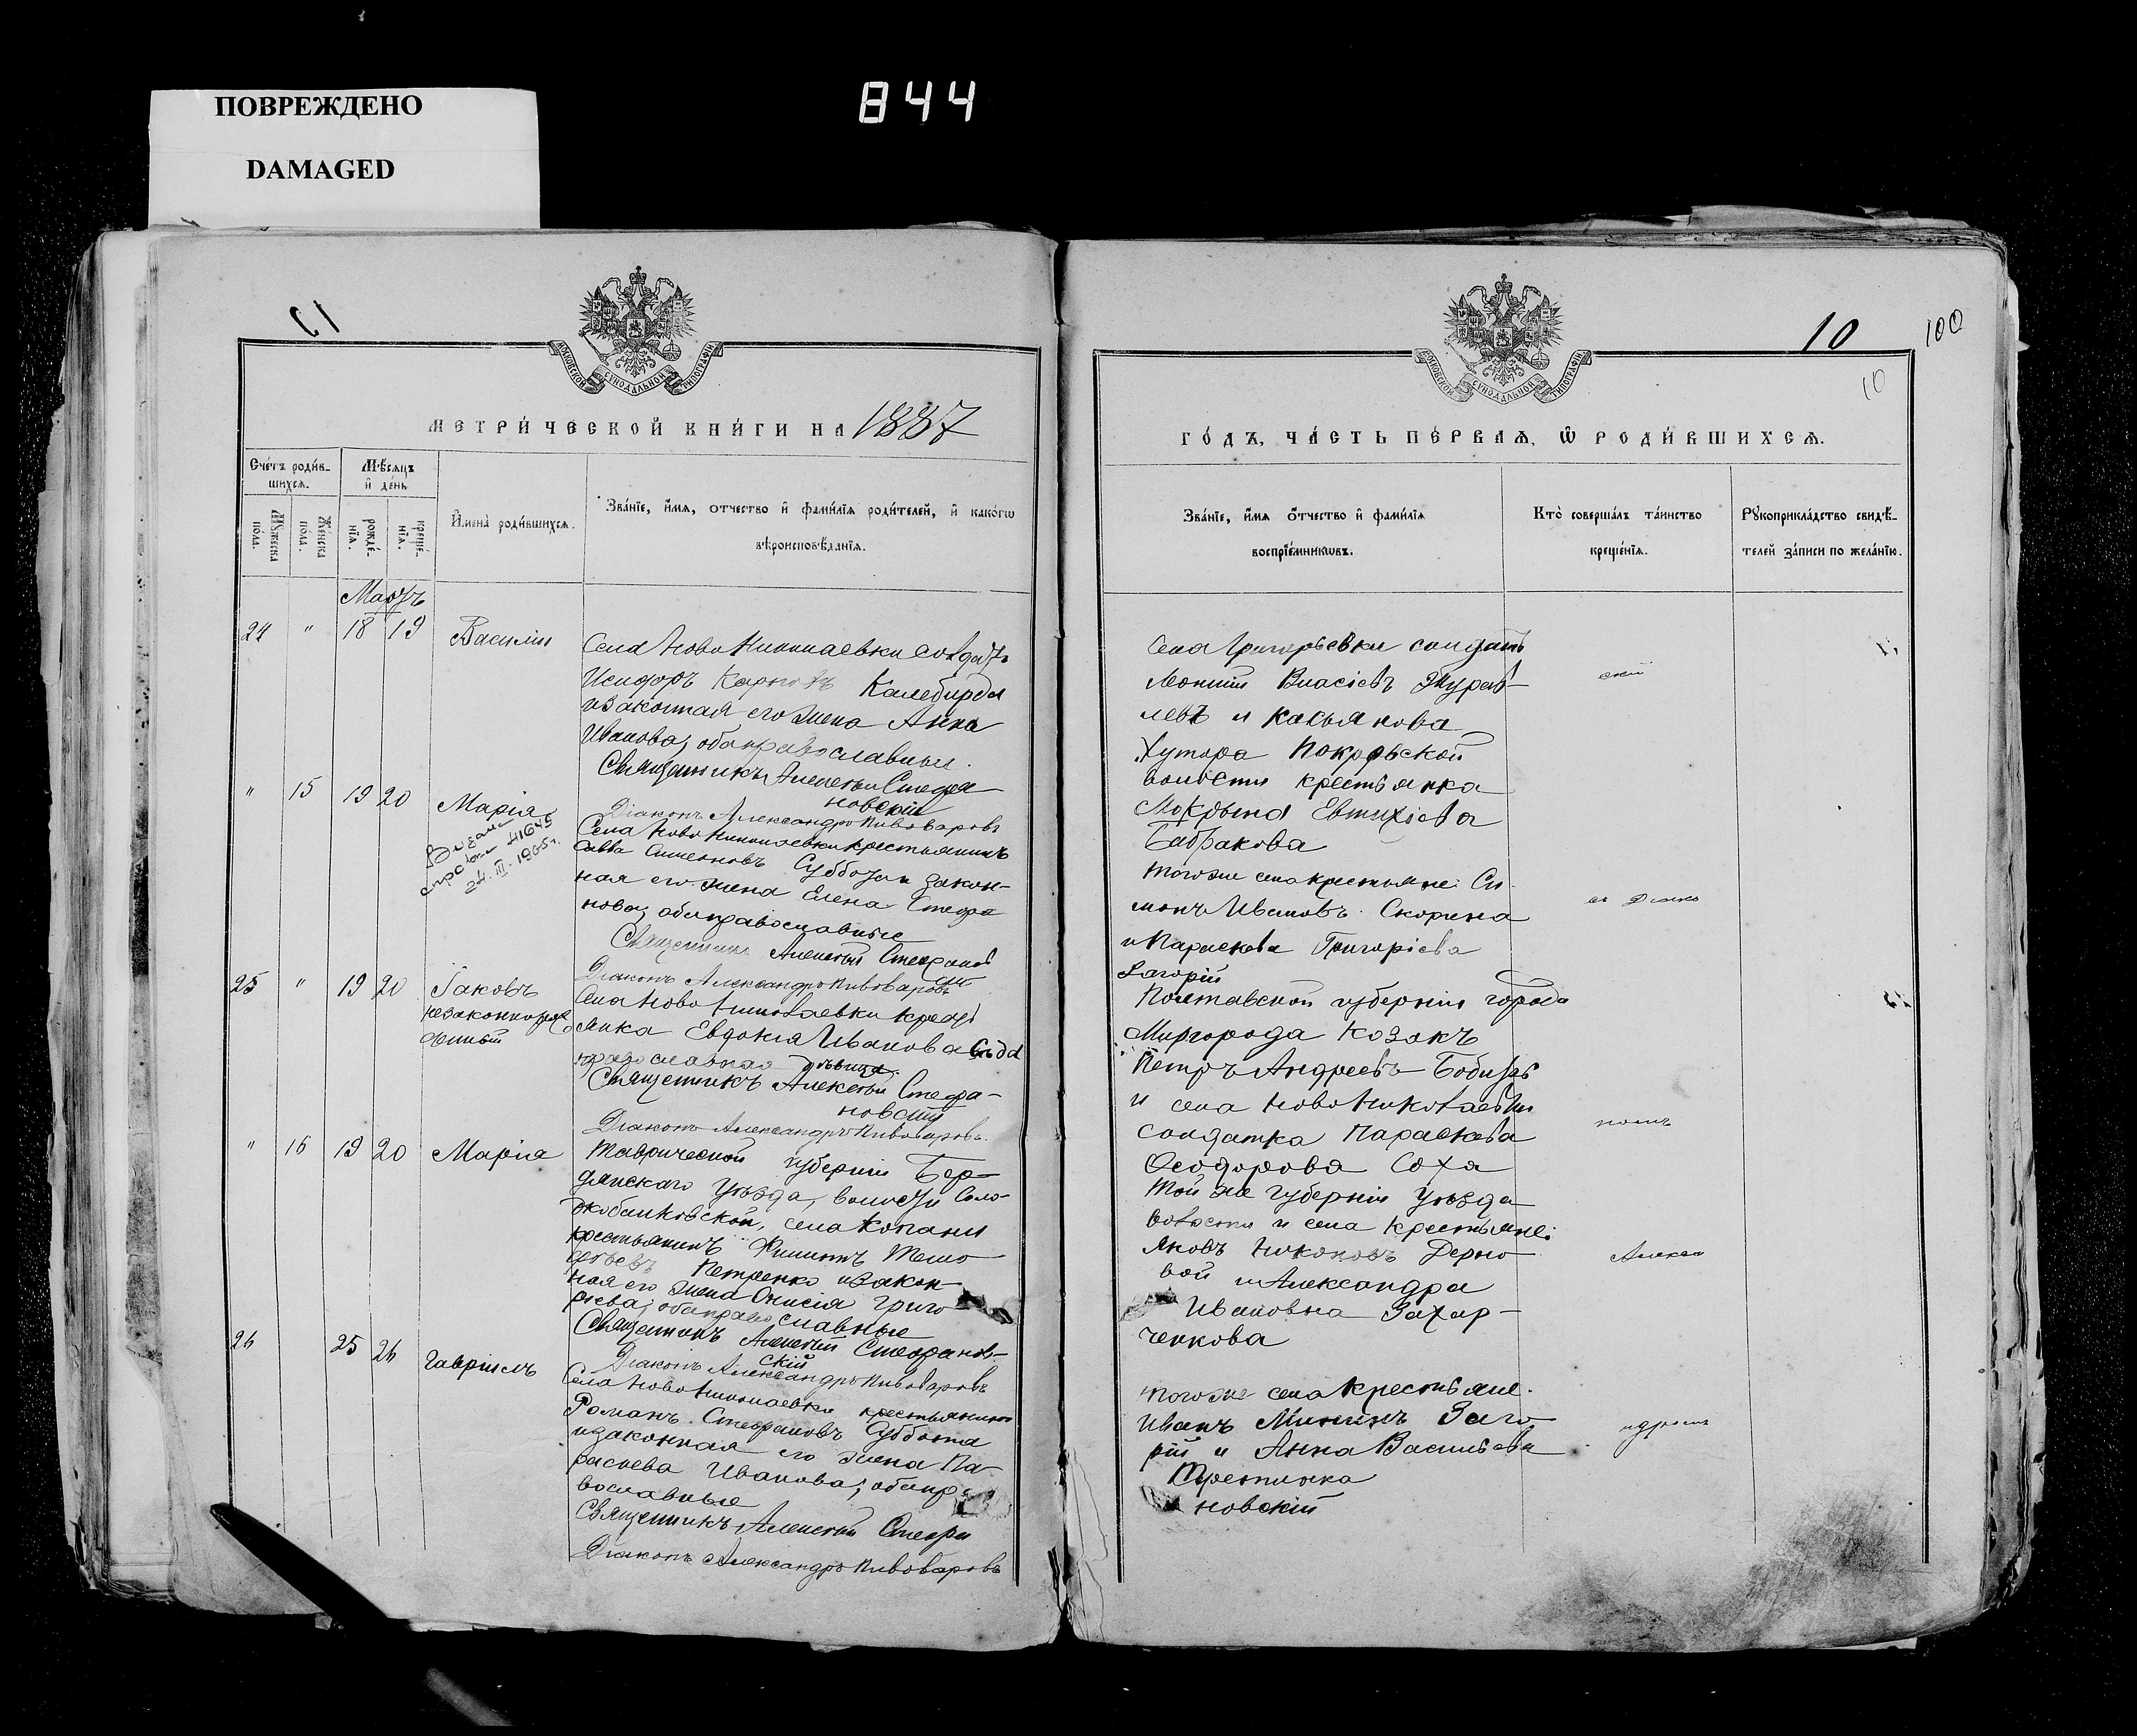 ПОВРЕЖДЕНО
DAMAGED
844
МОСКОВСКОЙ СѴНОДАЛЬНОЙ ТИПОГРАФІИ
МЕТРИ́ЧЕСКОЙ КНИ́ГИ НА 1887
Сче́тъ роди́в-
шихсѧ.
Мѣ́сѧцъ
и҆ де́нь
Мꙋ́жеска
пола.
Же́нска
пола.
рожде́-
нїѧ.
креще́-
нїѧ.
И҆мена̀ роди́вшихсѧ.
Зва́нїе, и҆́мѧ, ѻтчество и҆ фамилїѧ роди́телей, и҆ како́гѡ
вѣроисповѣданїѧ.
Мартъ
24 " 18 19 Василій
Села Ново Николаевки солдатъ
Исидоръ Карповъ Калеберда
и законная его жена Анна
Иванова, оба православные.
Священникъ Алексѣй Стефа-
новскій
Діаконъ Александръ Пивоваровъ
" 15 19 20 Марія
41645
24.III-1965г.
Села Ново Николаевки крестьянинъ
Савва Симеоновъ Суббота и закон-
ная его жена Елена Стефа
нова, оба православные
Священникъ Алексѣй Стефанов
скій
Діаконъ Александръ Пивоваровъ
25 " 19 20 Іаковъ
незаконнорож
денный
Села Ново Николаевки крестья
янка Евдокія Иванова
православная дѣвица.
Священникъ Алексѣй Стефа-
новскій
Діаконъ Александръ Пивоваровъ.
" 16 19 20 Марія
Таврической губерніи Бер-
дянскаго уѣзда, волости
села Копани
крестьянинъ Филиппъ Тимо
Петренко и закон-
ная его жена Онисія Григо
рьева, оба православные
Священникъ Алексѣй Стефанов-
скій
Діаконъ Александръ Пивоваровъ
26 25 26 Гавріилъ
Села Ново Николаевки крестьянинъ
Романъ Стефановъ Суббота
и законная его жена Па-
раскева Иванова; оба пра
вославные
Священникъ Алексѣй Стефа
Діаконъ Александръ Пивоваровъ
10
100
10
МОСКОВСКОЙ СѴНОДАЛЬНОЙ ТИПОГРАФІИ
ГО́ДЪ, ЧА́СТЬ ПЕ́РВАѦ, Ѡ҆ РОДИ́ВШИХСѦ.
Зва́нїе, и҆́мѧ ѻ҆́тчество и҆ фами́лїѧ
воспрїе́мникѡвъ.
Кто̀ соверша́лъ та́инство
креще́нїѧ.
Рꙋкоприкла́дство свидѣ́-
телей за́писи по жела́нїю.
Села Григорьевки солдатъ
Леонтій Власіевъ Журав-
левъ и Касьянова
Хутора Покровской
волости крестьянка
Мокрына Евтихіева
Бабракова
скій
Тогоже села крестьяне: Си
монъ Ивановъ Скорина
и Параскева Григоріева
Загорій
Полтавской губерніи города
Миргорода козакъ
Петръ Андреевъ
и села Ново Николаевки
солдатка Параскева
Ѳеодорова Соха
Той же губерніи уѣзда
волости и села крестьяне:
Яковъ Никоновъ Дерно
вой и Александра
Ивановна Захар-
ченкова
Алекса
Тогоже села крестьяне.
Иванъ Мининъ Заго
рій и Анна Васильева
новскій